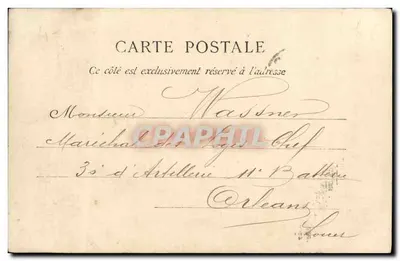 CARTE POSTALE
Ce côté est exclusivement réservé à l'adresse
Monsieur Wassner
Maréchal des Logis Chef
CPAPHIL
30e d'Artillerie 11e Batterie
Orléans
Loiret